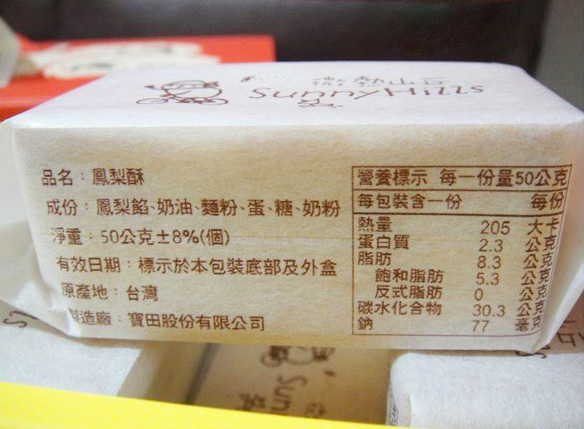 SunnyHills
品名：鳳梨酥
成份：鳳梨餡、奶油、麵粉、蛋、糖、奶粉
淨重：50公克±8%(個)
有效日期：標示於本包裝底部及外盒
原產地：台灣
製造廠：寶田股份有限公司
營養標示 每一份量50公克
每包裝含一份 每份
熱量 205 大卡
蛋白質 2.3 公克
脂肪 8.3 公克
飽和脂肪 5.3 公克
反式脂肪 0 公克
碳水化合物 30.3 公克
鈉 77 毫克
Sun